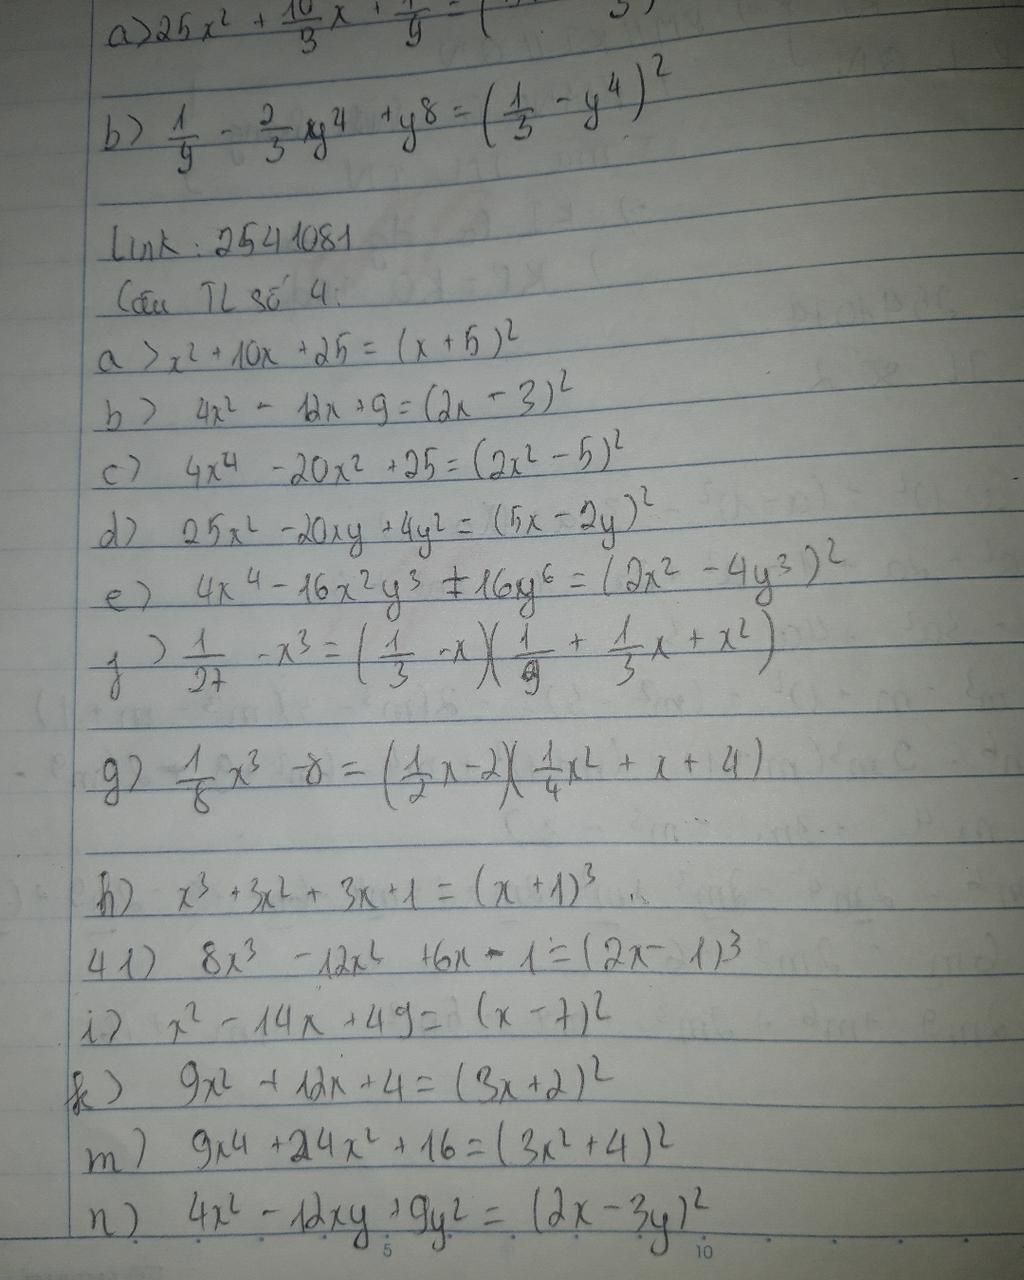 a) 25x² + 10/3 x + 1/9 = (
b) 1/9 - 2/3 y⁴ + y⁸ = (1/3 - y⁴)²
Link: 2541081
Câu TL số 4:
a) x² + 10x + 25 = (x + 5)²
b) 4x² - 12x + 9 = (2x - 3)²
c) 4x⁴ - 20x² + 25 = (2x² - 5)²
d) 25x² - 20xy + 4y² = (5x - 2y)²
e) 4x⁴ - 16x²y³ + 16y⁶ = (2x² - 4y³)²
f) 1/27 - x³ = (1/3 - x)(1/9 + 1/3 x + x²)
g) 1/8 x³ - 8 = (1/2 x - 2)(1/4 x² + x + 4)
h) x³ + 3x² + 3x + 1 = (x + 1)³
41) 8x³ - 12x² + 6x - 1 = (2x - 1)³
i) x² - 14x + 49 = (x - 7)²
k) 9x² + 12x + 4 = (3x + 2)²
m) 9x⁴ + 24x² + 16 = (3x² + 4)²
n) 4x² - 12xy + 9y² = (2x - 3y)²
5 10